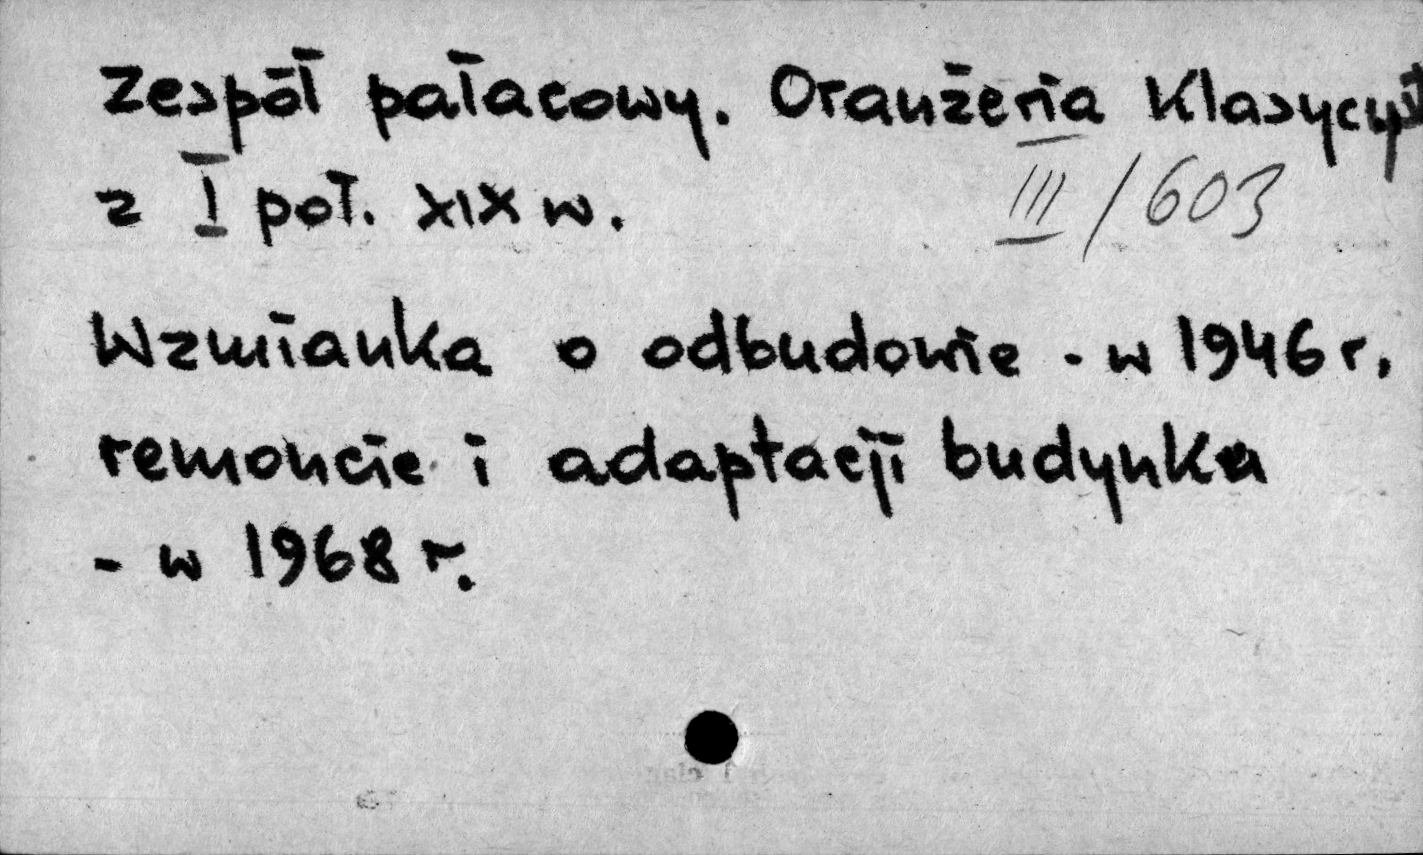 Zespół pałacowy. Oranżeria klasycyst
z I poł. XIX w.
III/603
Wzmianka o odbudowie - w 1946 r.
remoncie i adaptacji budynku
- w 1968 r.